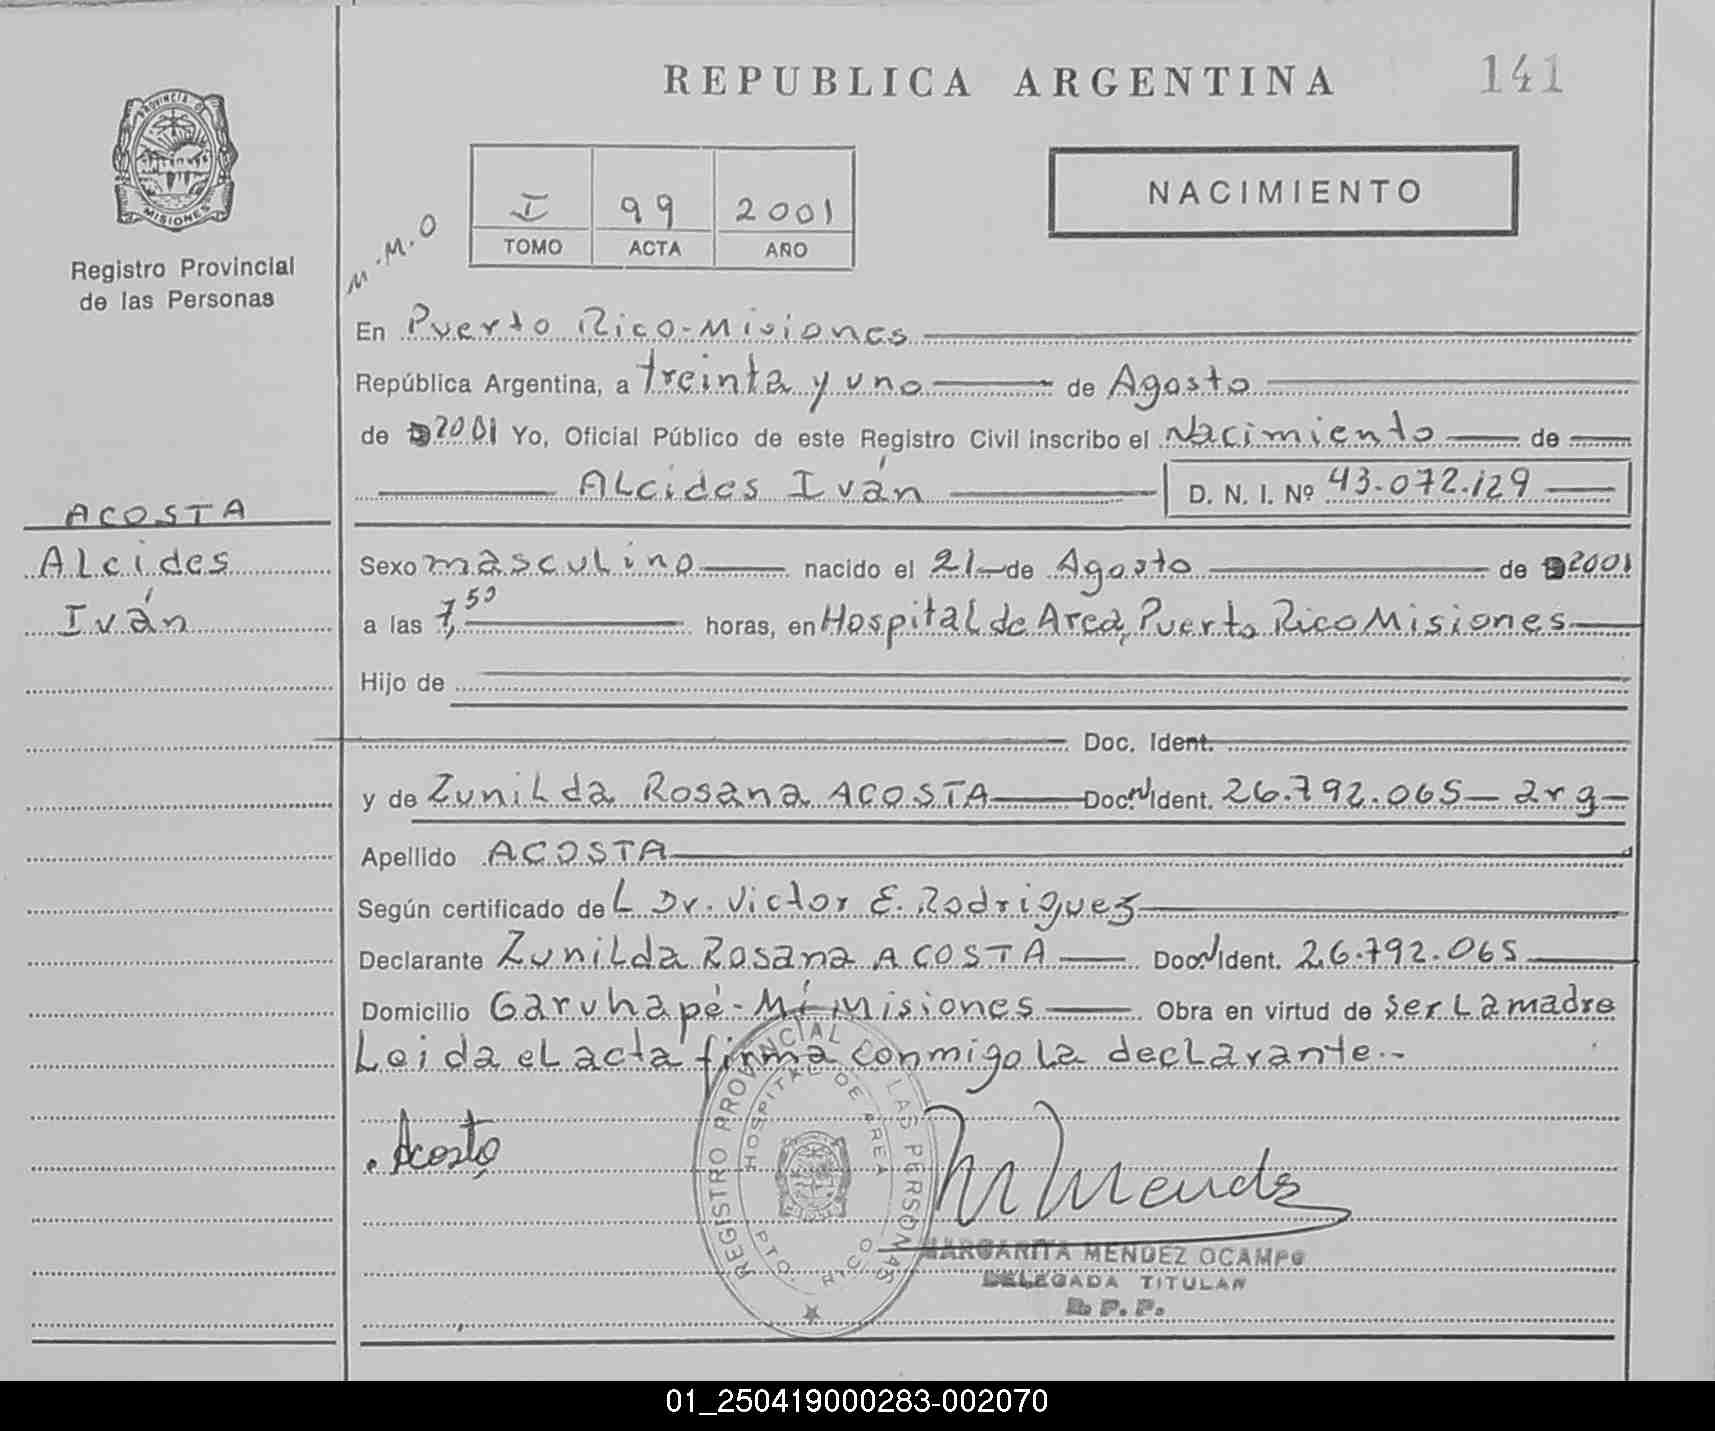 REPUBLICA ARGENTINA
141
PROVINCIA DE
MISIONES
Registro Provincial
de las Personas
M.M.O
I 99 2001
TOMO ACTA AÑO
NACIMIENTO
En Puerto Rico-Misiones
República Argentina, a treinta y uno de Agosto
de 2001 Yo, Oficial Público de este Registro Civil inscribo el Nacimiento de
Alcides Iván D. N. I. Nº 43.072.129
ACOSTA
Alcides
Iván
Sexo masculino nacido el 21 de Agosto de 2001
a las 7,50 horas, en Hospital de Area, Puerto Rico Misiones
Hijo de
Doc. Ident.
y de Zunilda Rosana ACOSTA Doc. Ident. 26.792.065 - arg -
Apellido ACOSTA
Según certificado del Dr. Victor E. Rodriguez
Declarante Zunilda Rosana ACOSTA Doc. Ident. 26.792.065
Domicilio Garuhapé-Mí-Misiones Obra en virtud de ser la madre
Leida el acta firma conmigo la declarante.-
Acosta
REGISTRO PROVINCIAL DE LAS PERSONAS
HOSPITAL DE AREA
PTO. RICO
M Mendez
MARGARITA MENDEZ OCAMPO
DELEGADA TITULAR
R. P. P.
01_250419000283-002070